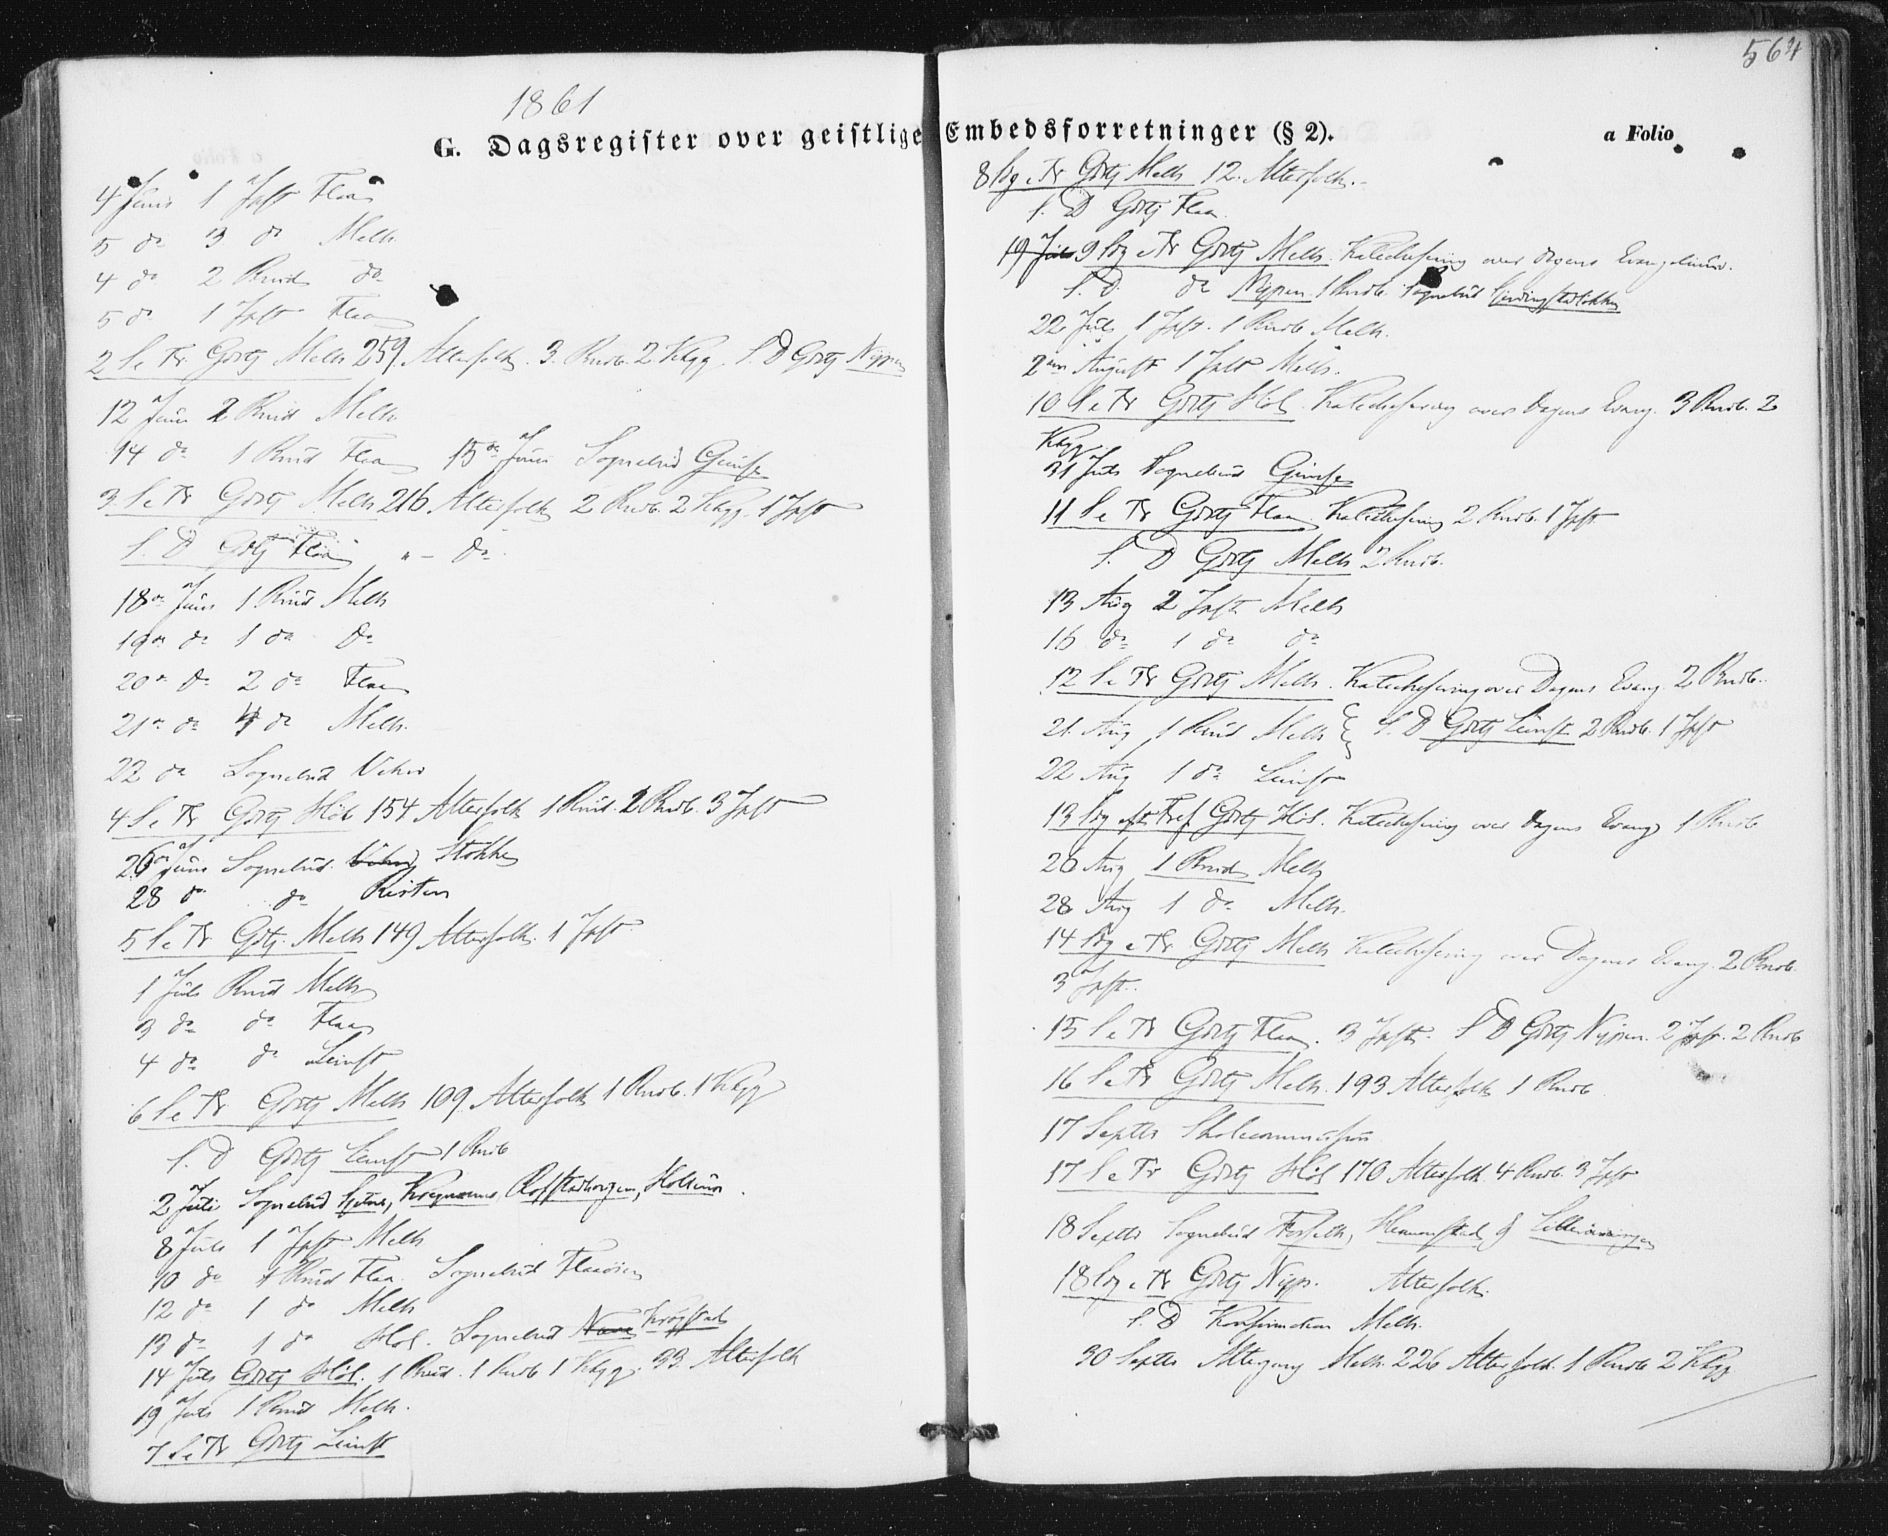 1861
564
G. Dagsregister over geistlige Embedsforretninger (§ 2).
a Folio
4 Juni 1 Jpft Flaa
5 do 3 do Melh
4 do 2 Bmd do
5 do 1 Jpft Flaa
2 S e Tr Gdtj Melh 259 Altersfolk. 3. Bmdb. 2 Khgg. S. D Gdtj Nypen
12 Juni 2 Bmd Melh
14 do 1 Bmd Flaa 15de Juni Sognebud Gimse
3. S e Tr Gdtj Melh 216 Altersfolk 2 Bmdb. 2 Khgg. 1 Jpft
S. D Gdtj Flaa " - do
18de Juni 1 Bmd Melh
19de do 1 do do
20de do 2 do Flaa
21de do 4 do Melh.
22 do Sognebud
4 S e Tr Gdtj Höl. 154 Altersfolk 1 Bmd. 2 Bmdb. 3 Jpft
26de Juni Sognebud. Stokke
28 do do
5 S e Tr Gdtj. Melh 149 Altersfolk. 1 Jpft
1 Juli Bmd Melh
3 do do Flaa
4 do do Leinst
6 S e Tr Gdtj Melh 109 Altersfolk 1 Bmdb. 1 Khgg
S. D Gdtj Leinst 1 Bmdb
2 Juli Sognebud
8 Juli 1 Jpft Melh
10 do 1 Bmd Flaa. Sognebud Flaaöien
12 do 1 do Melh
13 do 1 do Höl. Sognebud Krogstad
14 Juli Gdtj Höl. 1 Bmd. 1 Bmdb 1 Khgg. 33 Altersfolk
19 Juli 1 Bmd Melh.
7 S e Tr Gdtj Leinst
8 Sdg e Tr Gdtj Melh 12. Altersfolk.
S. D Gdtj Flaa.
19 Juli 9 Sdg e Tr Gdtj Melh. Katechisering over dagens Evangelium.
S. D. do Nypen 1 Bmdb. Sognebud
22 Juli 1 Jpft. 1 Bmdb Melh.
2den August 1 Jpft Melh.
10 S e Tr Gdtj Höl. Katechisering over Dagens Evang. 3 Bmdb. 2
Khgg
31 Juli Sognebud Gimse
11 S e Tr Gdtj Flaa Katechisering 2 Bmdb. 1 Jpft
S. D Gdtj Melh 2 Bmdb.
13 Aug 2 Jpft Melh
16 do 1 do do
12 S e Tr Gdtj Melh. Katechisering over Dagens Evang. 2 Bmdb.
21. Aug 1 Bmd Melh S. D Gdtj Leinst 2 Bmdb. 1 Jpft
22 Aug 1 do Leinst
13 Sdg eft Tref Gdtj Höl. Katechisering over dagens Evang. 1 Bmdb
26 Aug 1 Bmd Melh
28 Aug 1 do Melh.
14 Sdg e Tr Gdtj Melh Katechisering over Dagens Evang. 2 Bmdb.
3 Jpft.
15 S e Tr Gdtj Flaa. 3 Jpft. S D Gdtj Nypen. 2 Jpft. 2 Bmdb
16 S e Tr Gdtj Melh. 193 Altersfolk 1 Bmdb
17 Septbr Skolecommission
17 S e Tr Gdtj Höl 170 Altersfolk. 4 Bmdb. 3 Jpft
18 Septbr Sognebud
18 Sdg e Tr Gdtj Nypn. Altersfolk.
S. D Konfirmation Melh.
30 Septbr Altergang Melh. 226 Altersfolk. 1 Bmdb 2 Khgg